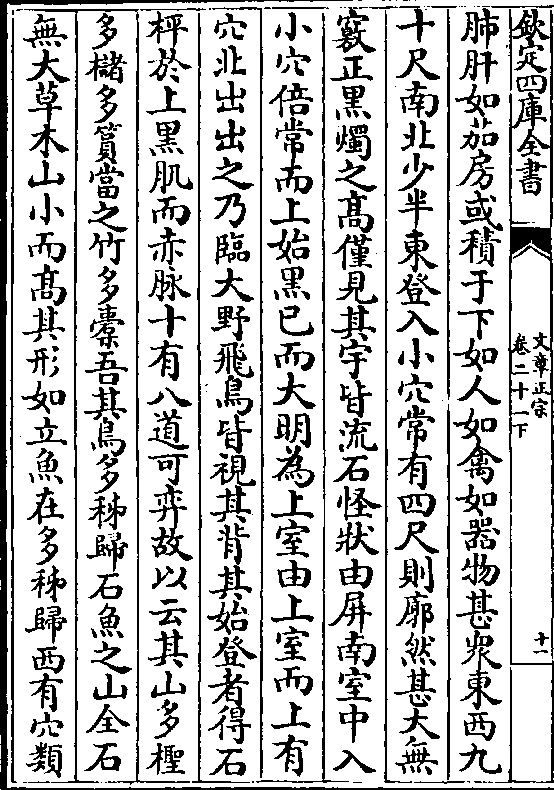 欽定四庫全書
文章正宗
卷二十一下
十一
肺肝如茄房或積于下如人如禽如器物甚衆東西九
十尺南北少半東登入小穴常有四尺則廓然甚大無
竅正黑燭之髙僅見其宇皆流石怪狀由屏南室中入
小穴倍常而上始黑已而大明為上室由上室而上有
穴北出出之乃臨大野飛鳥皆視其背其始登者得石
枰於上黑肌而赤脉十有八道可弈故以云其山多檉
多櫧多篔當之竹多橐吾其鳥多秭歸石魚之山全石
無大草木山小而髙其形如立魚在多秭歸西有穴類